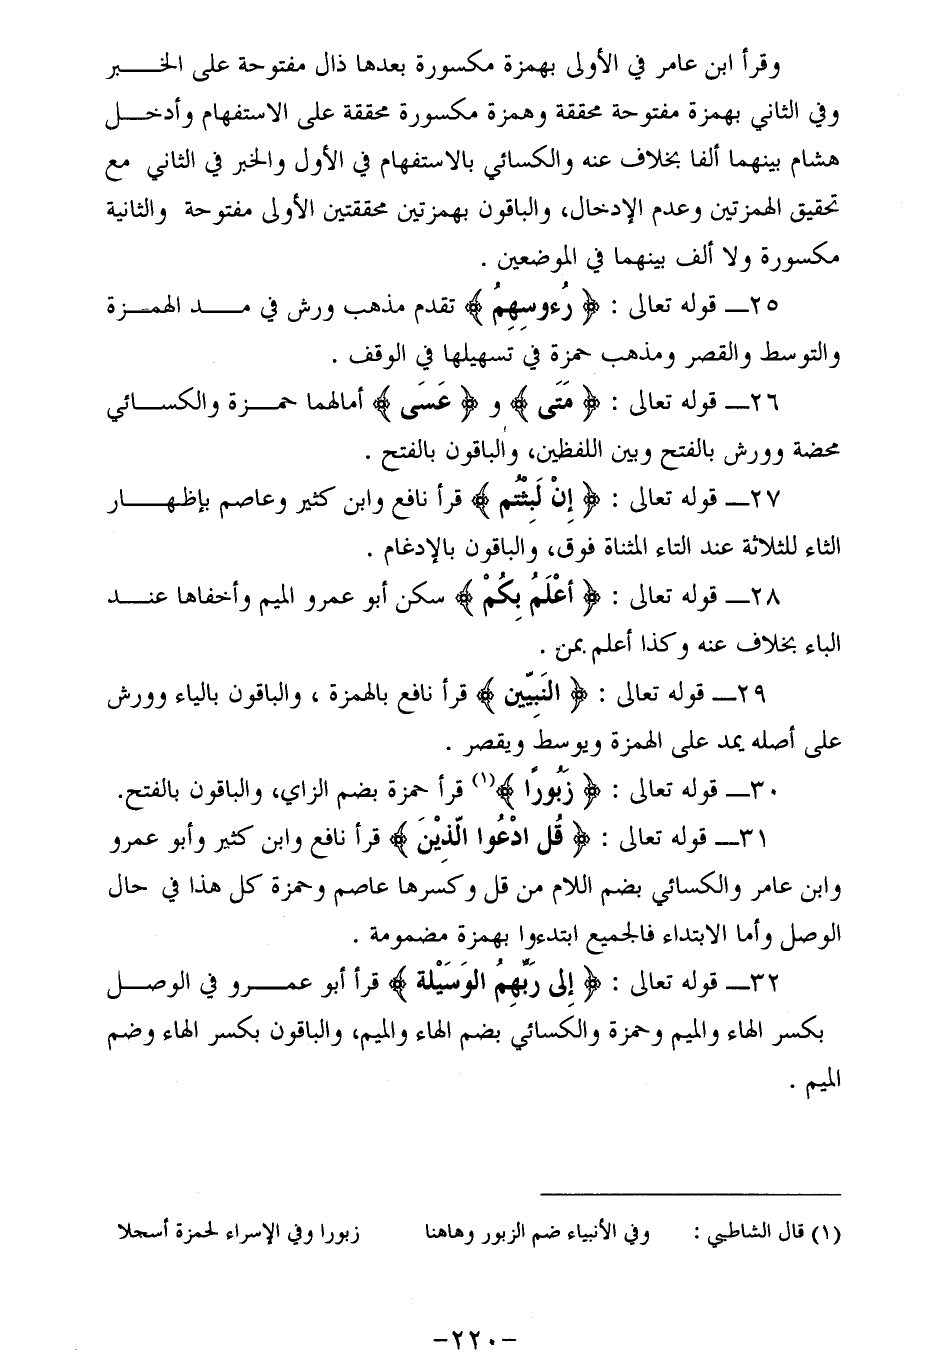 وقرأ ابن عامر في الأولى بهمزة مكسورة بعدها ذال مفتوحة على الخبر
وفي الثاني بهمزة مفتوحة محققة وهمزة مكسورة محققة على الاستفهام وأدخل
هشام بينهما ألفا بخلاف عنه والكسائي بالاستفهام في الأول والخبر في الثاني مع
تحقيق الهمزتين وعدم الإدخال، والباقون بهمزتين محققتين الأولى مفتوحة والثانية
مكسورة ولا ألف بينهما في الموضعين .
٢٥ــ قوله تعالى : ﴿ رُءوسِهِمُ ﴾ تقدم مذهب ورش في مــد الهمزة
والتوسط والقصر ومذهب حمزة في تسهيلها في الوقف .
٢٦ــ قوله تعالى : ﴿ مَتَى ﴾ و ﴿ عَسَى ﴾ أمالهما حمزة والكسائي
محضة وورش بالفتح وبين اللفظين، والباقون بالفتح .
٢٧ــ قوله تعالى : ﴿ إِنْ لَبِثْتُم ﴾ قرأ نافع وابن كثير وعاصم بإظهار
الثاء للثلاثة عند التاء المثناة فوق، والباقون بالإدغام .
٢٨ــ قوله تعالى : ﴿ أعْلَمُ بِكُمْ ﴾ سكن أبو عمرو الميم وأخفاها عند
الباء بخلاف عنه وكذا أعلم بمن .
٢٩ــ قوله تعالى : ﴿ النَبِيّين ﴾ قرأ نافع بالهمزة ، والباقون بالياء وورش
على أصله يمد على الهمزة ويوسط ويقصر .
٣٠ــ قوله تعالى : ﴿ زَبُورًا ﴾(١) قرأ حمزة بضم الزاي، والباقون بالفتح.
٣١ــ قوله تعالى : ﴿ قُلِ ادْعُوا الّذِيْنَ ﴾ قرأ نافع وابن كثير وأبو عمرو
وابن عامر والكسائي بضم اللام من قل وكسرها عاصم وحمزة كل هذا في حال
الوصل وأما الابتداء فالجميع ابتدءوا بهمزة مضمومة .
٣٢ــ قوله تعالى : ﴿ إِلى رَبِّهِمُ الوَسَيْلة ﴾ قرأ أبو عمرو في الوصل
بكسر الهاء والميم وحمزة والكسائي بضم الهاء والميم، والباقون بكسر الهاء وضم
الميم .
(١) قال الشاطبي : وفي الأنبياء ضم الزبور وهاهنا زبورا وفي الإسراء لحمزة أسجلا
-٢٢٠-